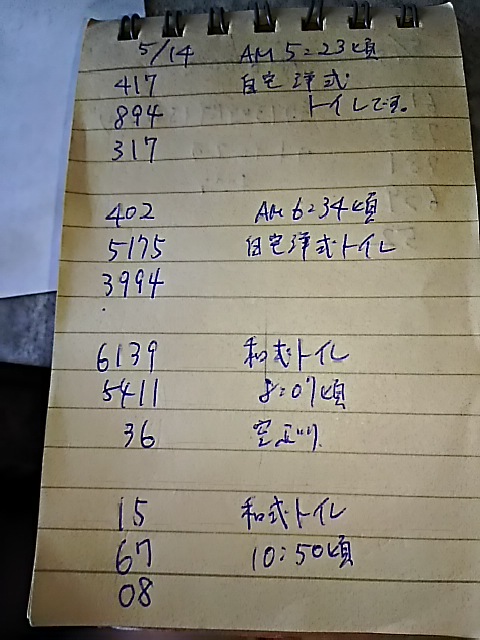 5/14 AM 5:23頃
417 自宅洋式
894 トイレです。
317
402 AM 6:34頃
5175 自宅洋式トイレ
3994
6139 和式トイレ
5411 8:07頃
36
15 和式トイレ
67 10:50頃
08